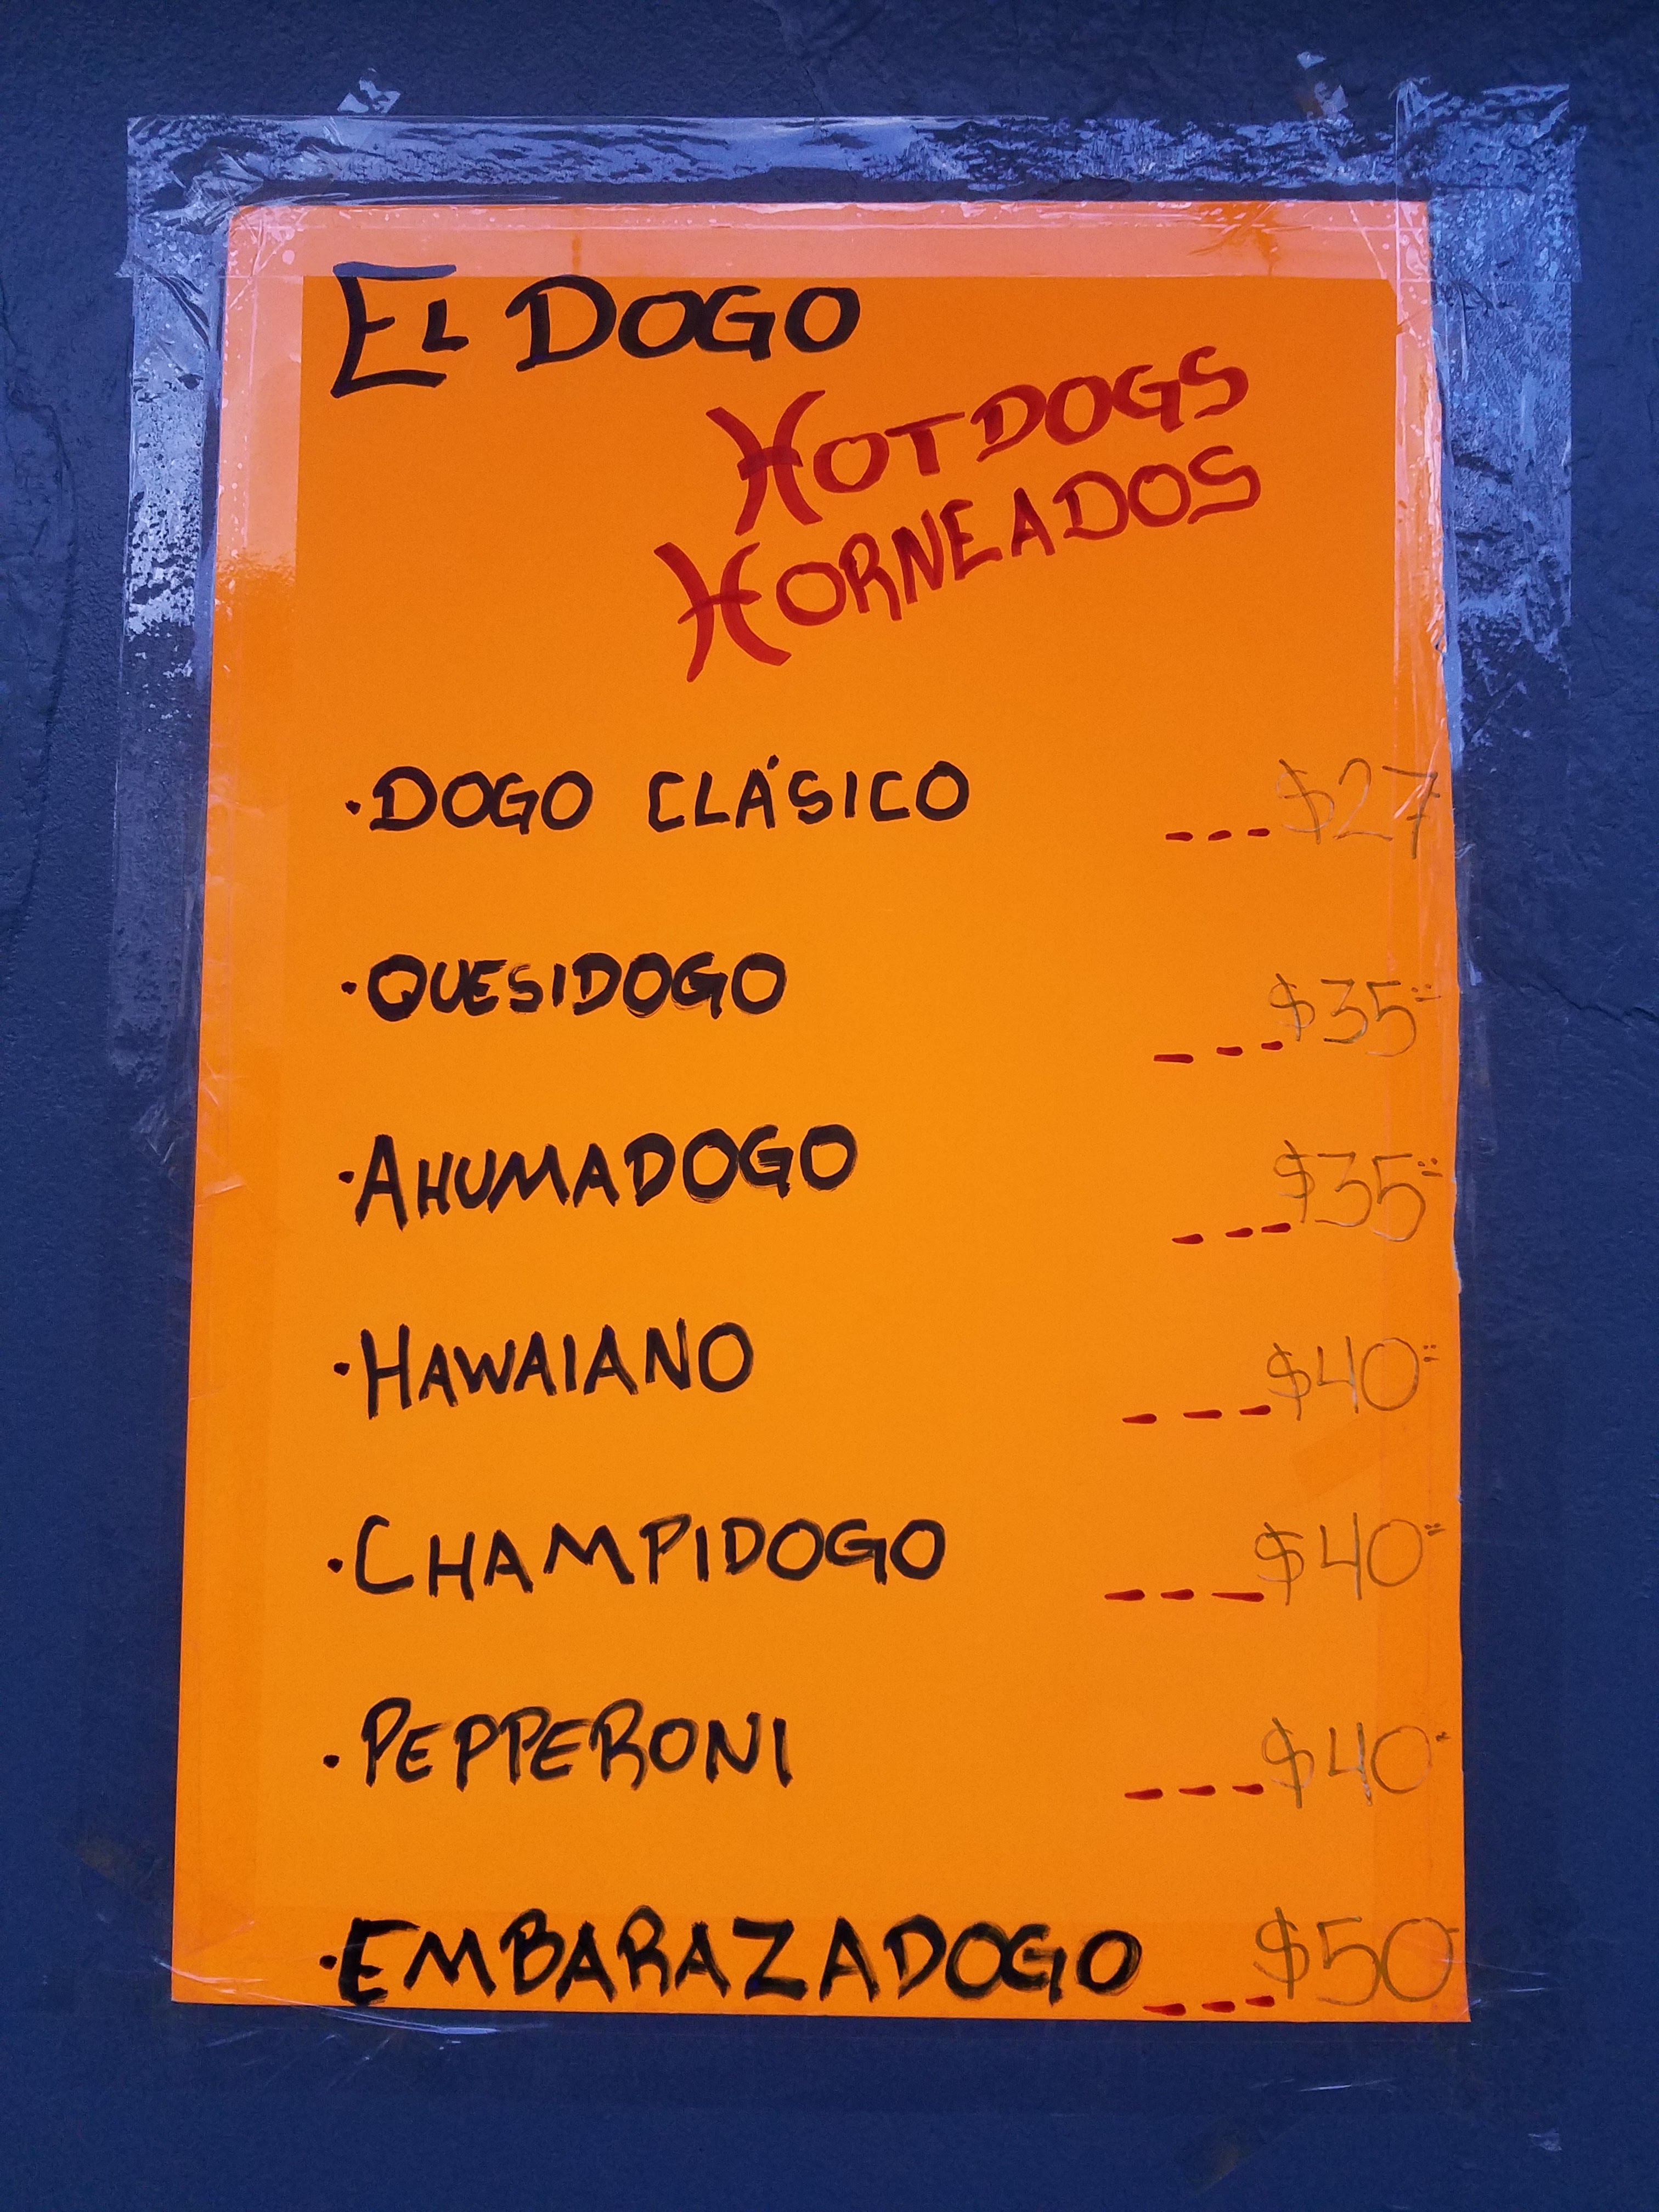 EL DOGO
HOTDOGS
HORNEADOS
·DOGO CLÁSICO ---$27
·QUESIDOGO ---$35
·AHUMADOGO ---$35
·HAWAIANO ---$40
·CHAMPIDOGO ---$40
·PEPPERONI ---$40
·EMBARAZADOGO ---$50